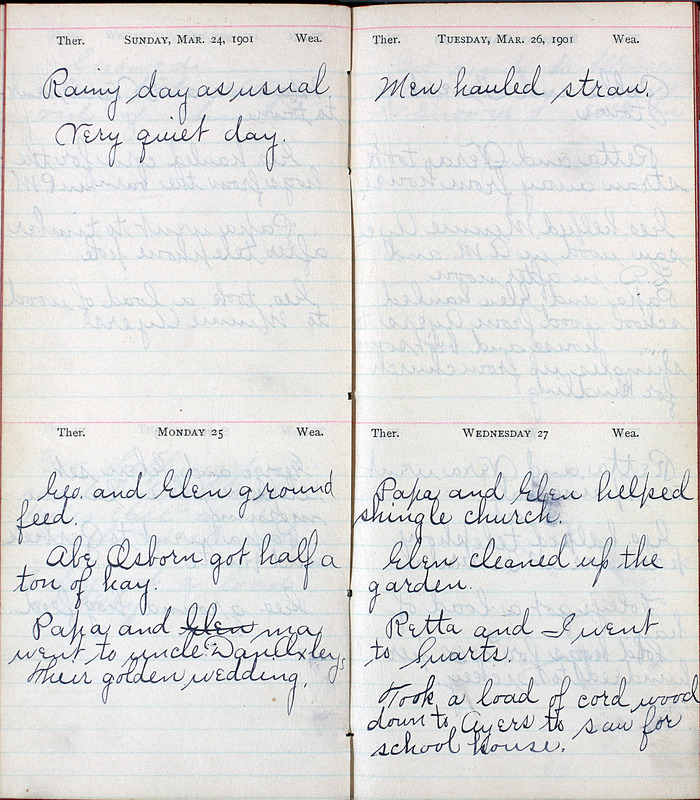 Ther. SUNDAY, MAR. 24, 1901 Wea.
Rainy day as usual
Very quiet day.
Ther. MONDAY 25 Wea.
Geo. and Glen ground
feed.
Abe Osborn got half a
ton of hay.
Papa and Glen ma
went to uncle Dan
Their golden wedding.
Ther. TUESDAY, MAR. 26, 1901 Wea.
Men hauled straw.
Ther. WEDNESDAY 27 Wea.
Papa and Glen helped
shingle church.
Glen cleaned up the
garden.
Retta and I went
to Swarts.
Took a load of cord wood
down to Ayers to saw for
school house.